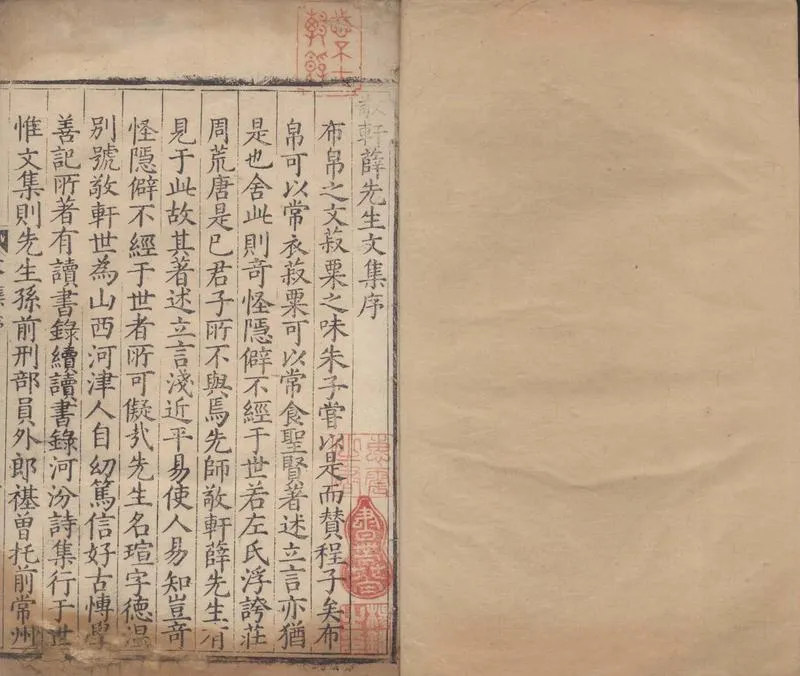 敬軒薛先生文集序
布帛之文菽粟之味朱子嘗以是而賛程子矣布
帛可以常衣菽粟可以常食聖賢著述立言亦猶
是也舍此則竒怪隠僻不經于世若左氏浮誇莊
周荒唐是已君子所不與焉先師敬軒薛先生有
見于此故其著述立言淺近平易使人易知豈竒
怪隠僻不經于世者所可儗㢤先生名瑄字德温
别號敬軒世為山西河津人自幼篤信好古愽學
善記所著有讀書錄續讀書錄河汾詩集行于世
惟文集則先生孫前刑部員外郎禥曾托前常州